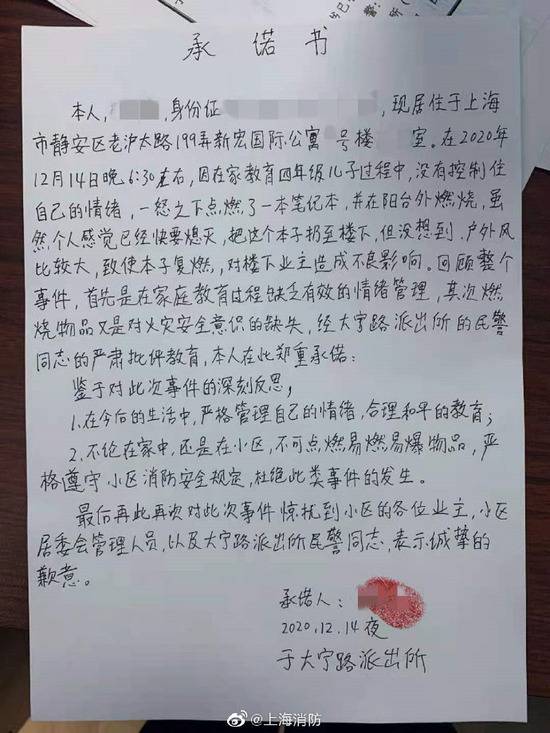 承诺书
本人，身份证，现居住于上海
市静安区老沪太路199弄新宏国际公寓号楼室。在2020年
12月14日晚6:30左右，因在家教育四年级儿子过程中，没有控制住
自己的情绪，一怒之下点燃了一本笔记本，并在阳台外燃烧，虽
然，个人感觉已经快要熄灭，把这个本子扔至楼下，但没想到，户外风
比较大，致使本子复燃，对楼下业主造成不良影响。回顾整个
事件，首先是在家庭教育过程缺乏有效的情绪管理，其次燃
烧物品又是对火灾安全意识的缺失，经大宁路派出所的民警
同志的严肃批评教育，本人在此郑重承诺：
鉴于对此次事件的深刻反思，
1.在今后的生活中，严格管理自己的情绪，合理和平的教育；
2.不论在家中，还是在小区，不可点燃易燃易爆物品，严
格遵守小区消防安全规定，杜绝此类事件的发生。
最后再此再次对此次事件惊扰到小区的各位业主，小区
居委会管理人员，以及大宁路派出所民警同志，表示诚挚的
歉意。
承诺人：
2020.12.14夜
于大宁路派出所
@上海消防